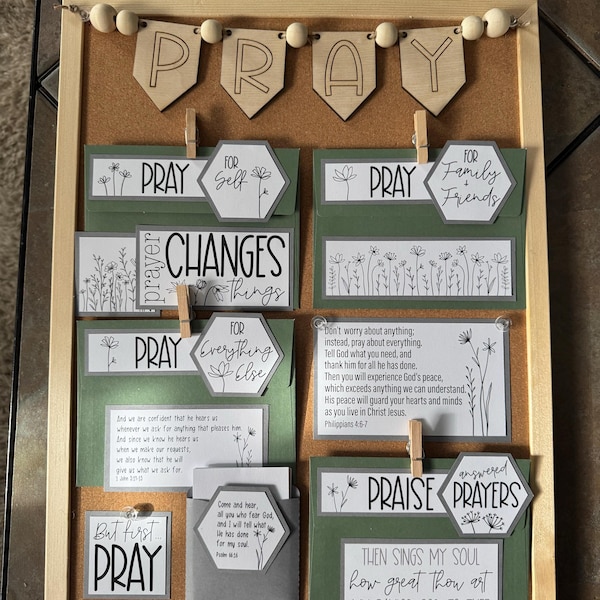 PRAY
PRAY
FOR
Self
PRAY
FOR
Family
+
Friends
prayer
CHANGES
things
PRAY
FOR
Everything
Else
Don't worry about anything;
instead, pray about everything.
Tell God what you need, and
thank him for all he has done.
Then you will experience God's peace,
which exceeds anything we can understand.
His peace will guard your hearts and minds
as you live in Christ Jesus.
Philippians 4:6-7
And we are confident that he hears us
whenever we ask for anything that pleases him.
And since we know he hears us
when we make our requests,
we also know that he will
give us what we ask for.
1 John 5:14-15
PRAISE
answered
PRAYERS
Come and hear,
all you who fear God,
and I will tell what
He has done
for my soul.
Psalm 66:16
But first...
PRAY
THEN SINGS MY SOUL
how great thou art